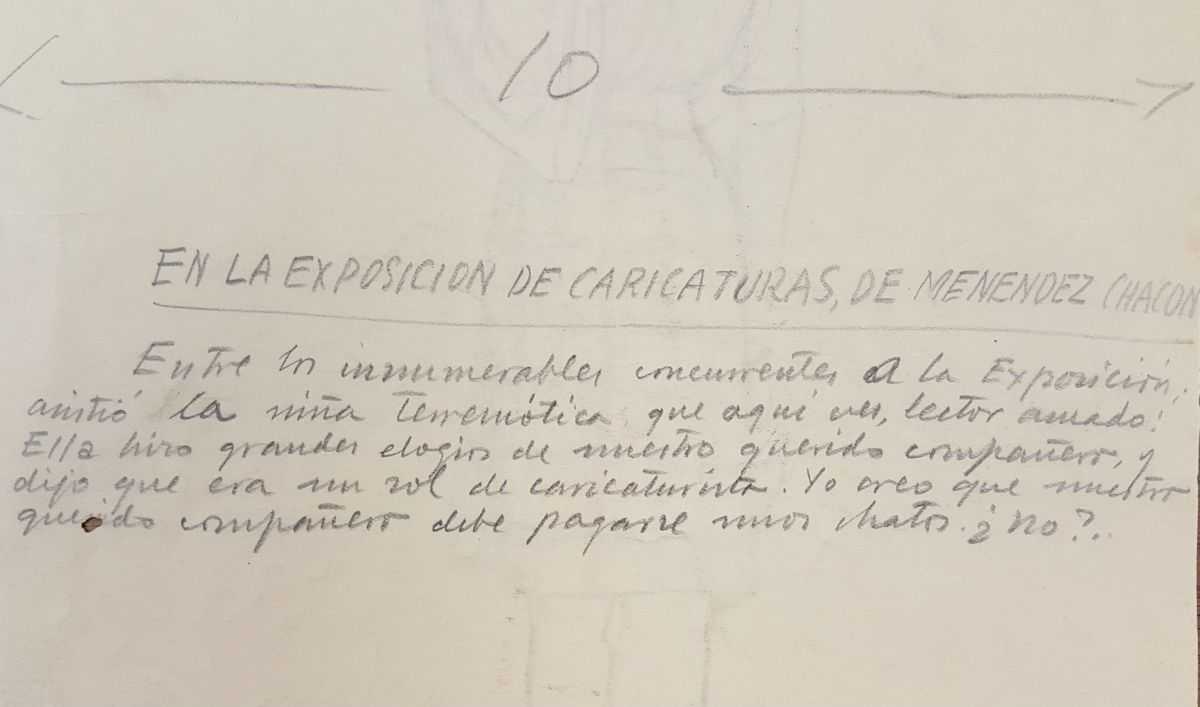 10
EN LA EXPOSICION DE CARICATURAS, DE MENENDEZ CHACON
Entre los innumerables concurrentes a la Exposición,
asistió la niña Terremótica que aquí ves, lector amado!
Ella hizo grandes elogios de nuestro querido compañero, y
dijo que era un sol de caricaturista. Yo creo que nuestro
querido compañero debe pagarse unos chatos. ¿No?.